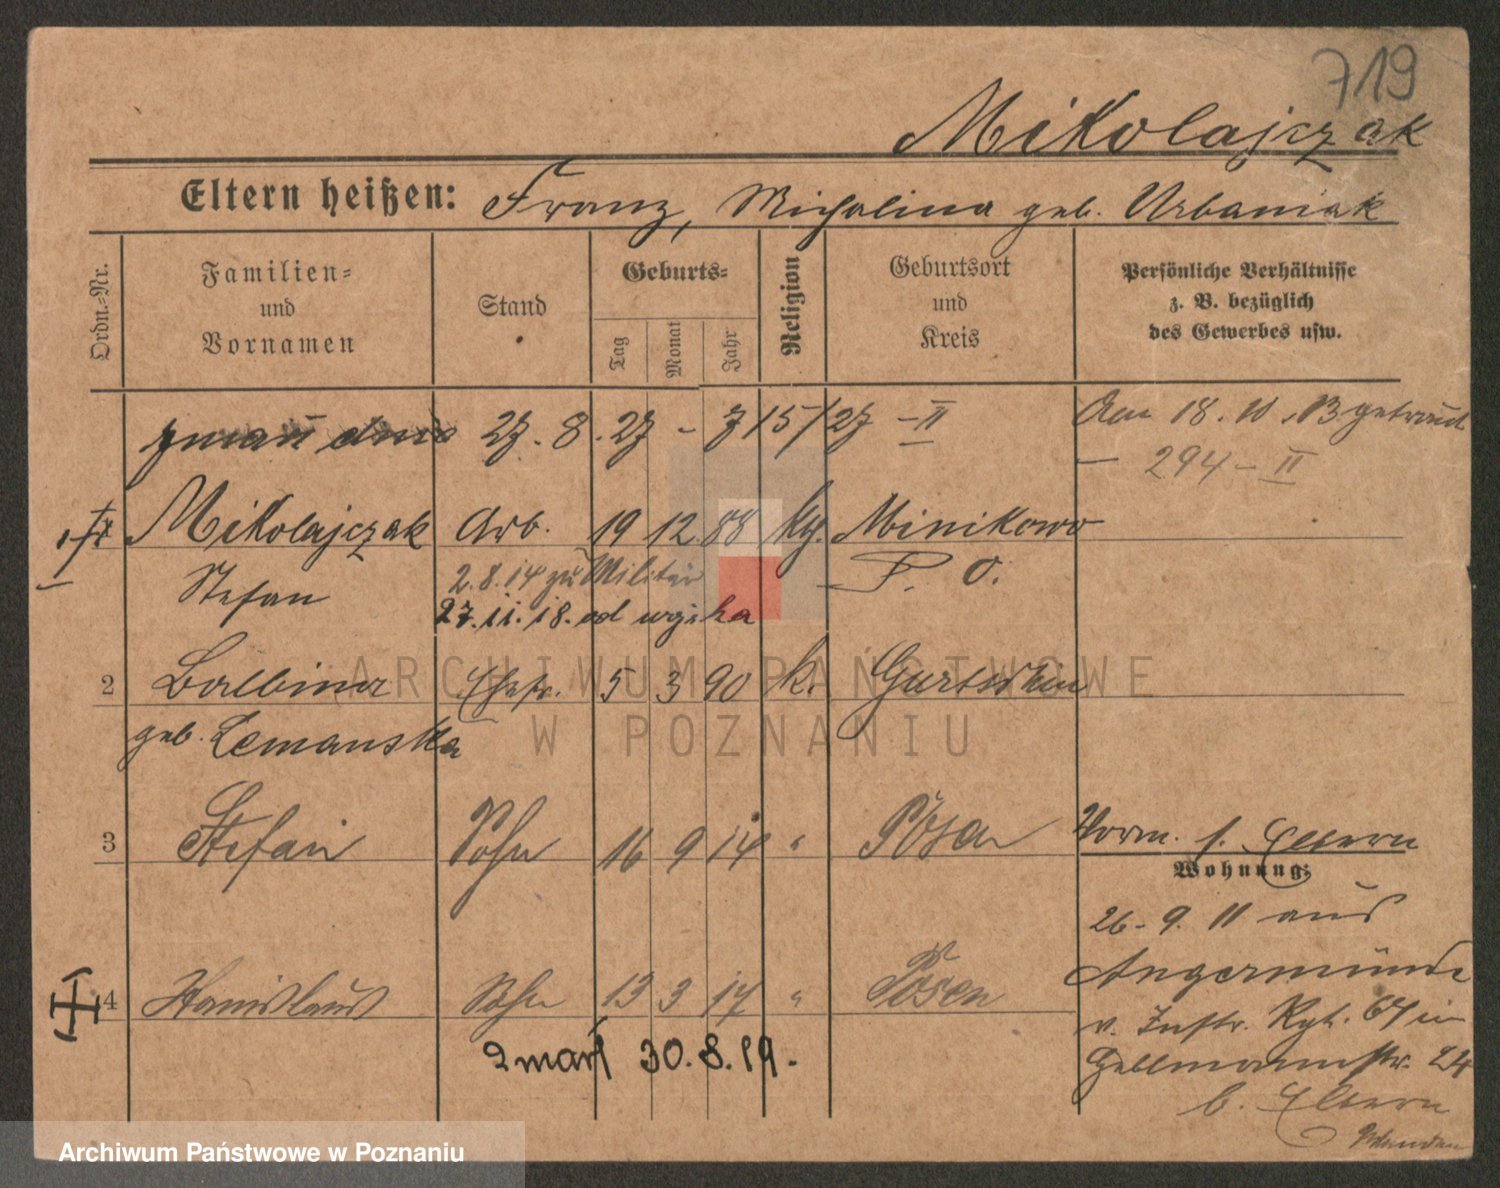 719
Mikolajczak
Eltern heißen: Franz, Michalina geb. Urbaniak
Ordn.-Nr.
Familien- und Vornamen
Stand
Geburts-
Tag
Monat
Jahr
Religion
Geburtsort und Kreis
Persönliche Verhältnisse z. B. bezüglich des Gewerbes usw.
27.8.27 - 715/27 - II
Am 18.10.13 getraut
— 294 - II
Mikolajczak Arb. 19 12. 88 kg. Minikowo
Stefan 2.8.14 zu Militär P. O.
27.11.18. od wojska
2 Balbina Ehefr. 5 3 90 k. Gurtschin
geb. Lemanska
3 Stefan Sohn 16 9 14 " Posen
Vorm. s. Eltern
Wohnung:
26.9.11 aus
Angermünde
4 Stanislaus Sohn 13 3 17 " Posen
v. Inftr. Rgt. 64 in
zmarł 30.8.19.
Gellmannstr. 24
b. Eltern
ARCHIWUM PAŃSTWOWE
W POZNANIU
Archiwum Państwowe w Poznaniu